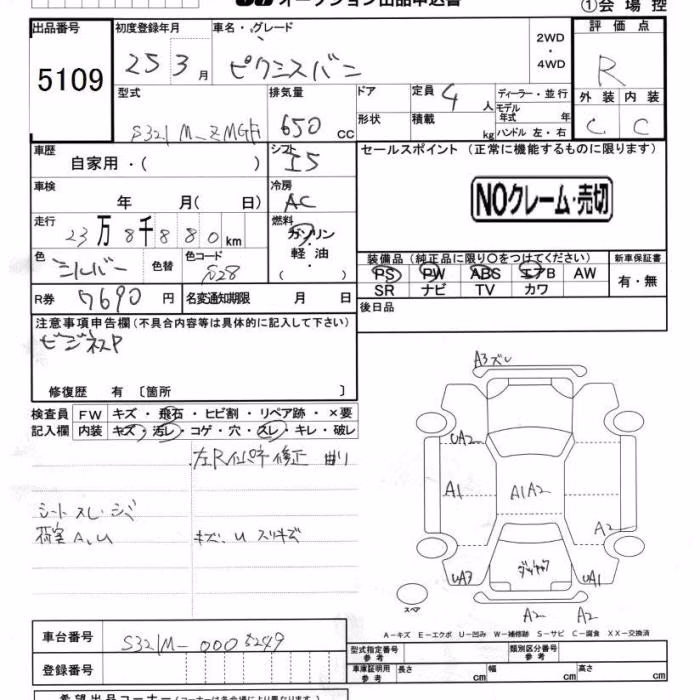 オークション出品申込書
①会場控
出品番号 初度登録年月 車名・グレード 2WD・4WD 評価点
5109 25 3月 ピクシスバン R
型式 排気量 ドア 定員 4人 ディーラー・並行 外装 内装
650 cc 形状 積載 kg モデル年式 年 ハンドル 左・右 C C
車歴 シフト セールスポイント (正常に機能するものに限ります)
自家用・( ) I5
車検 冷房 NOクレーム・売切
年 月( 日) AC
走行 燃料
23万8千880km ガソリン・軽油・( )
色 色替 色コード 装備品 (純正品に限り○をつけてください) 新車保証書
シルバー S28 PS PW ABS エアB AW 有・無
SR ナビ TV カワ
R券 7690円 名変通知期限 月 日 後日品
注意事項申告欄(不具合内容等は具体的に記入して下さい)
ビジネスP
修復歴 有 〔箇所 〕
検査員 FW キズ・飛石・ヒビ割・リペア跡・×要
記入欄 内装 キズ・汚レ・コゲ・穴・スレ・キレ・破レ
修正 曲リ
シート スレ・シミ
荷室 A、U キズ、U スリキズ
A3ズレ
UA2
A1 A1A2 A2
UA3 UA1
スペア
A2 A2
A-キズ E-エクボ U-凹み W-補修跡 S-サビ C-腐食 XX-交換済
車台番号 S321M-0005249
登録番号
型式指定番号 参考 類別区分番号 参考
車庫証明用 参考 長さ cm 幅 cm 高さ cm
希望出品コーナー(コーナーは各会場により異なります)